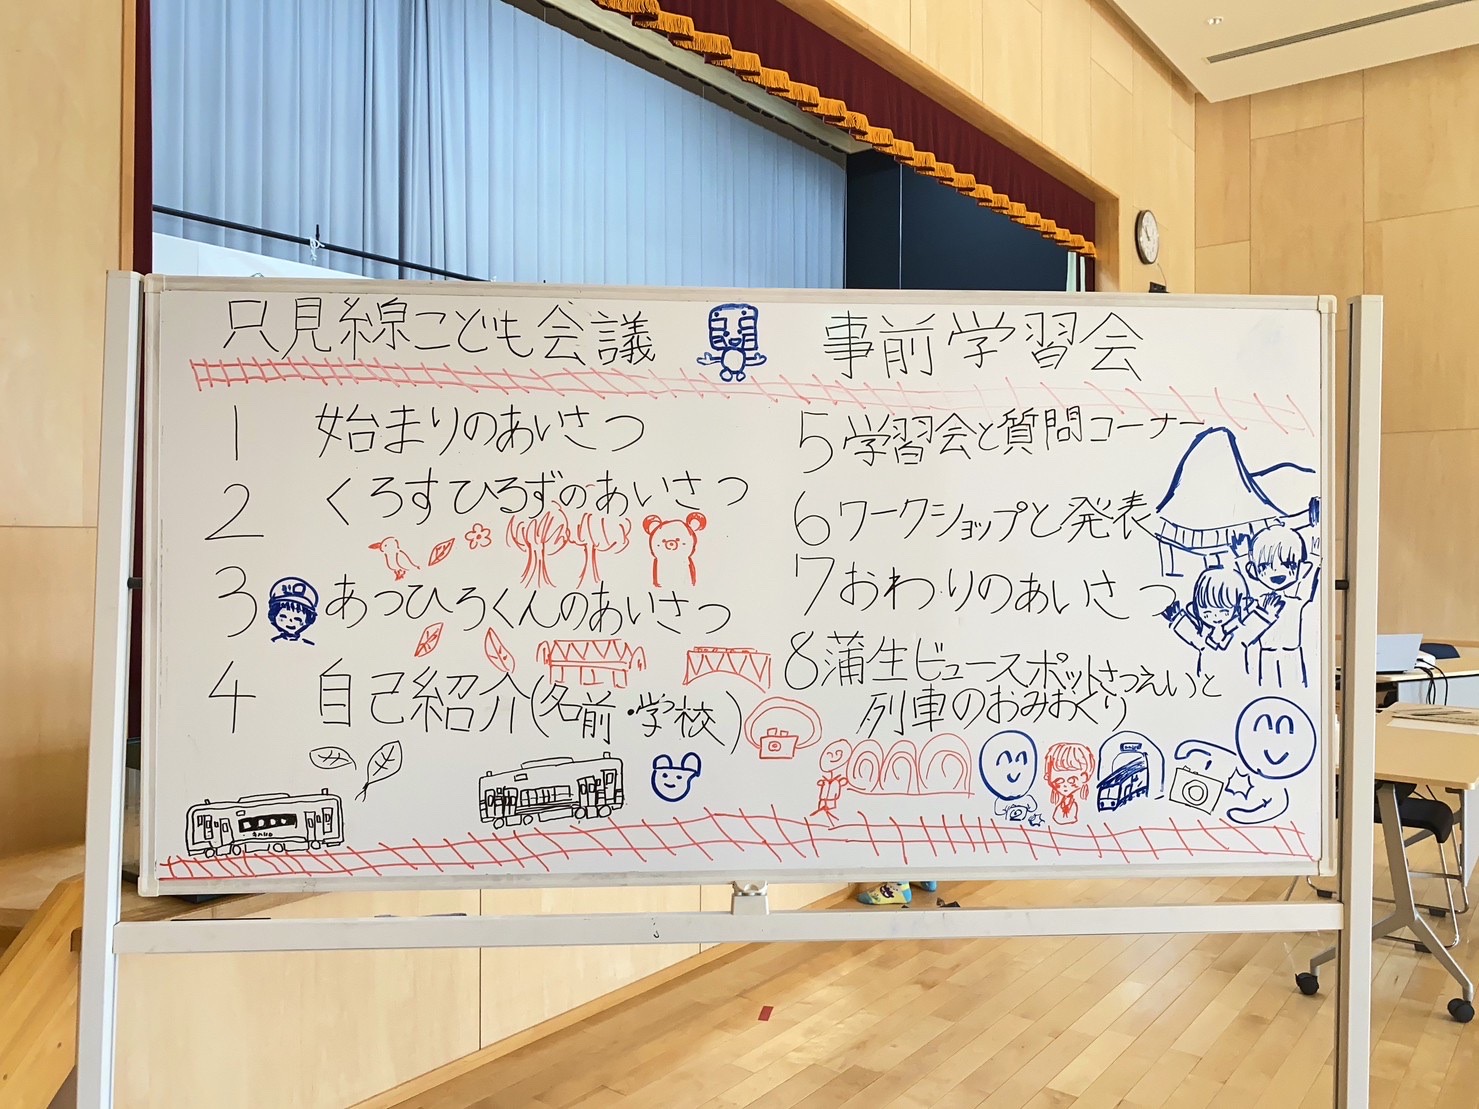 只見線こども会議 事前学習会
1 始まりのあいさつ
2 くろすひろずのあいさつ
3 あつひろくんのあいさつ
4 自己紹介(名前・学校)
5 学習会と質問コーナー
6 ワークショップと発表
7 おわりのあいさつ
8 蒲生ビュースポットさつえいと
列車のおみおくり